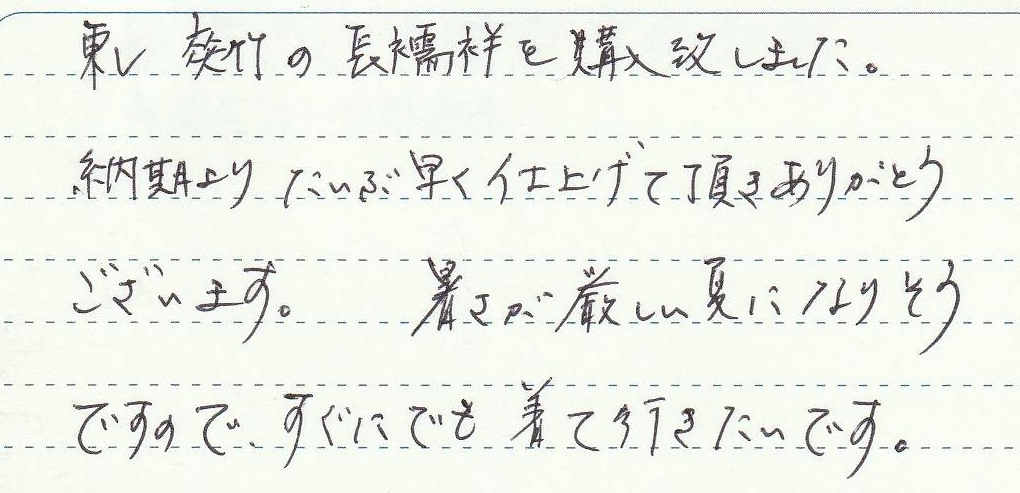 東レ 爽竹の長襦袢を購入致しました。
納期より だいぶ早く仕上げて頂きありがとう
ございます。 暑さが厳しい夏になりそう
ですので、すぐにでも着て行きたいです。